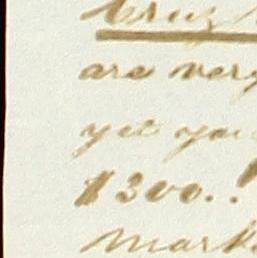 Cruz
are very
yet you
$300..
Mark